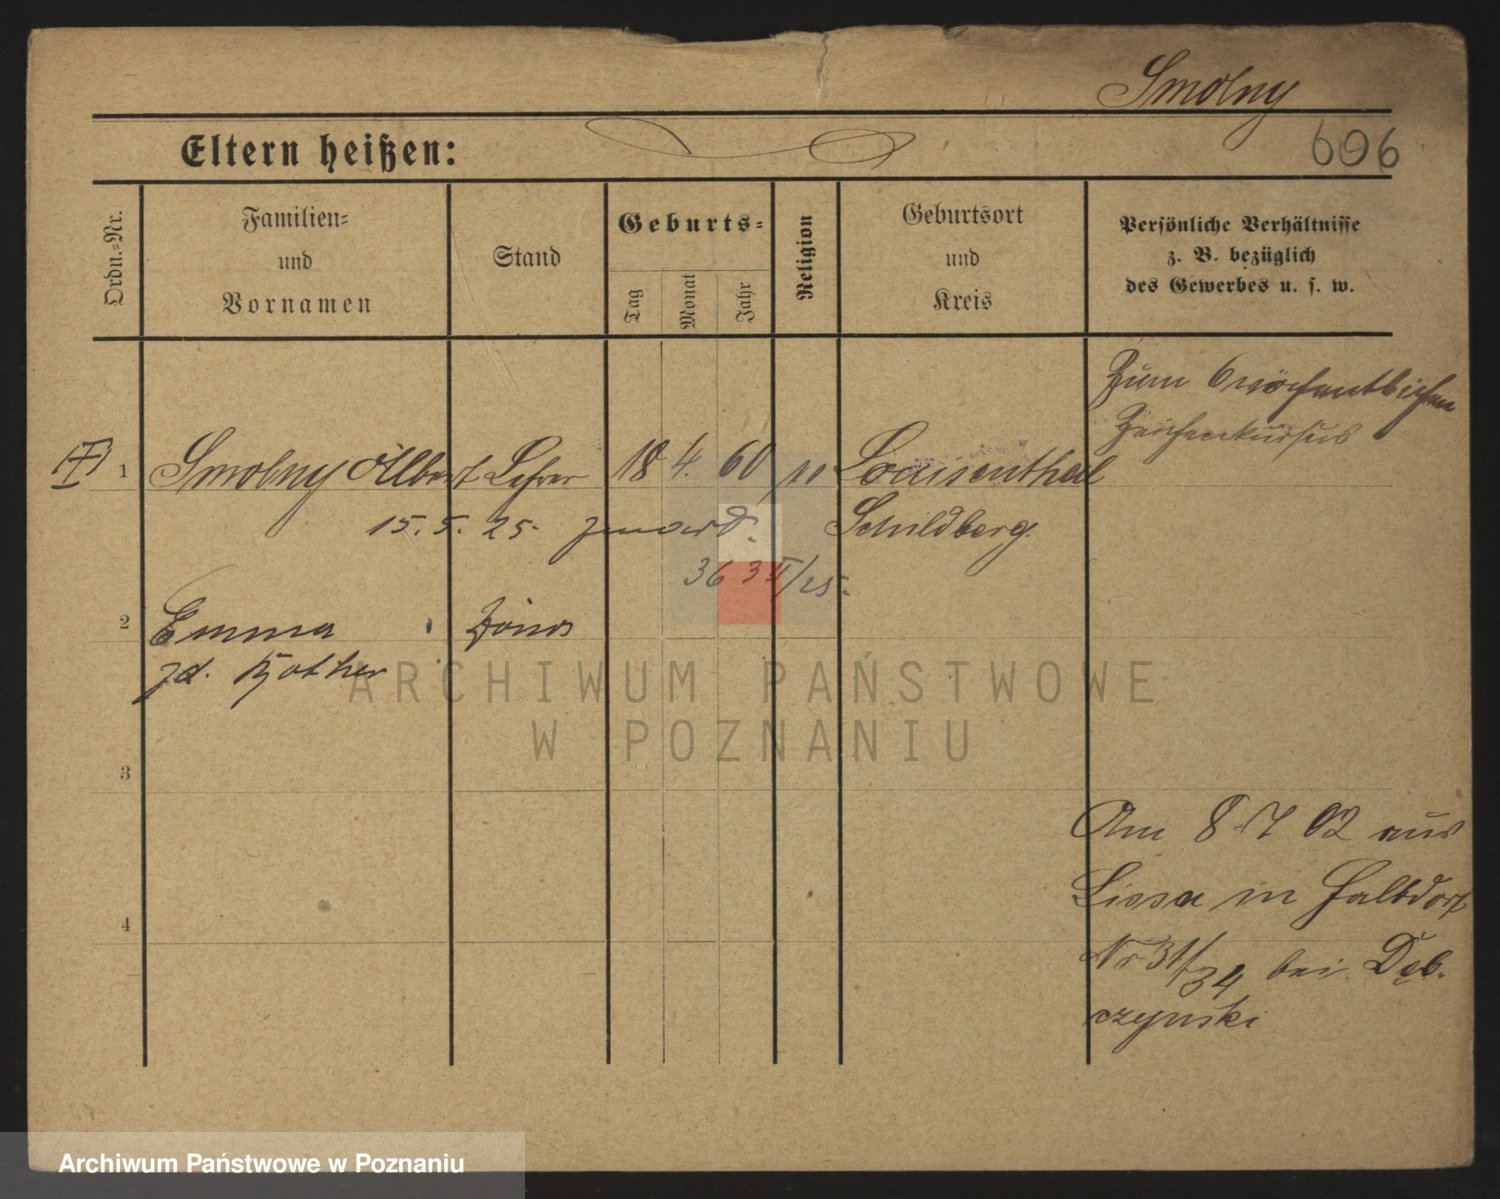 Smolny
Eltern heißen:
606
Ordn.-Nr.
Familien-
und
Vornamen
Stand
Geburts-
Tag
Monat
Jahr
Religion
Geburtsort
und
Kreis
Persönliche Verhältnisse
z. B. bezüglich
des Gewerbes u. s. w.
Zum 6 wöchentlichen
Zeichenkursus
1 Smolny Albert Lehrer 18 4. 60 Louisenthal
15. 5. 25. zmarł. Schildberg
36 3 II/25.
2 Emma
Kother
3
4
Am 8 7 02 aus
Lissa in Halbdorf
Nr 31/34 bei Dęb-
czynski
ARCHIWUM PAŃSTWOWE
W POZNANIU
Archiwum Państwowe w Poznaniu